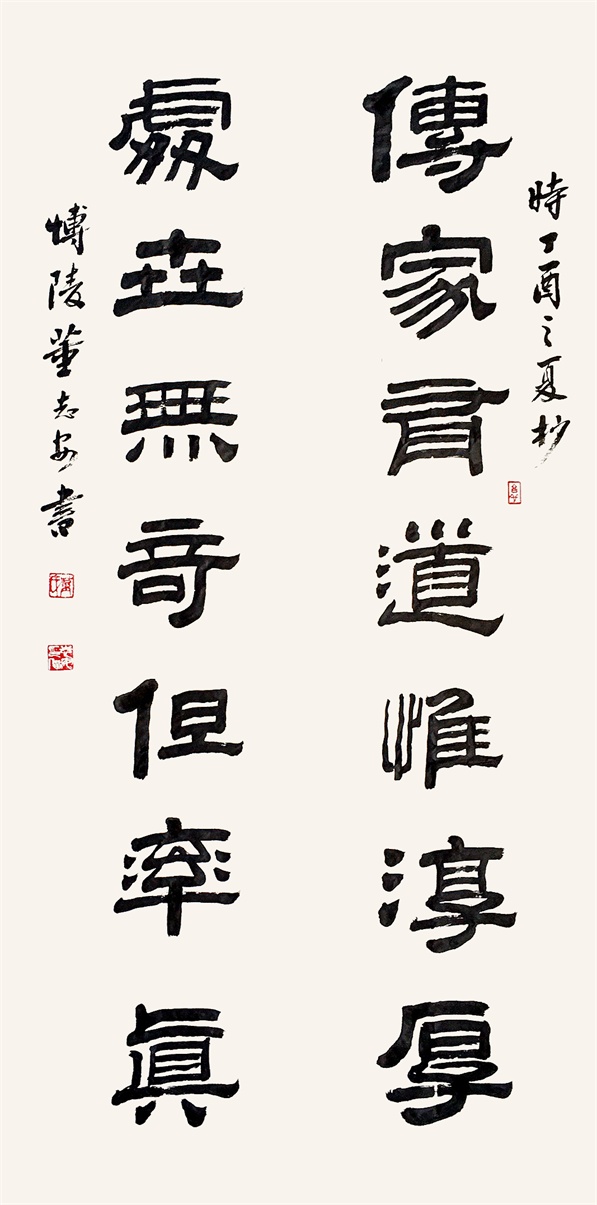 時丁酉之夏杪
傳家有道惟淳厚
處世無奇但率真
博陵董志安書